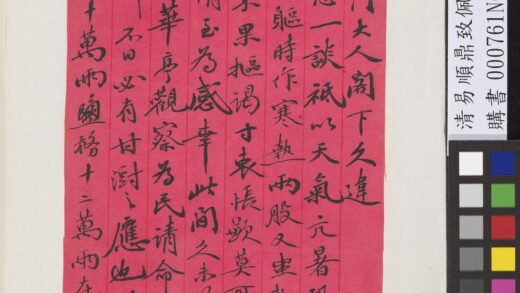 大人閣下久違
一談祇以天氣亢暑
軀時作寒熱兩股又坐
果果摳謁寸衷悵歉莫
玉為感幸此間久未
華亭觀察為民請命
不日必有甘澍之應
十萬兩鹽務十二萬兩
清易順鼎致佩
購書 000761N